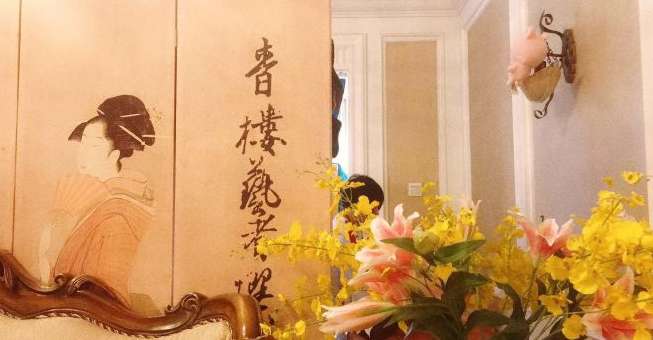 青樓藝者撰